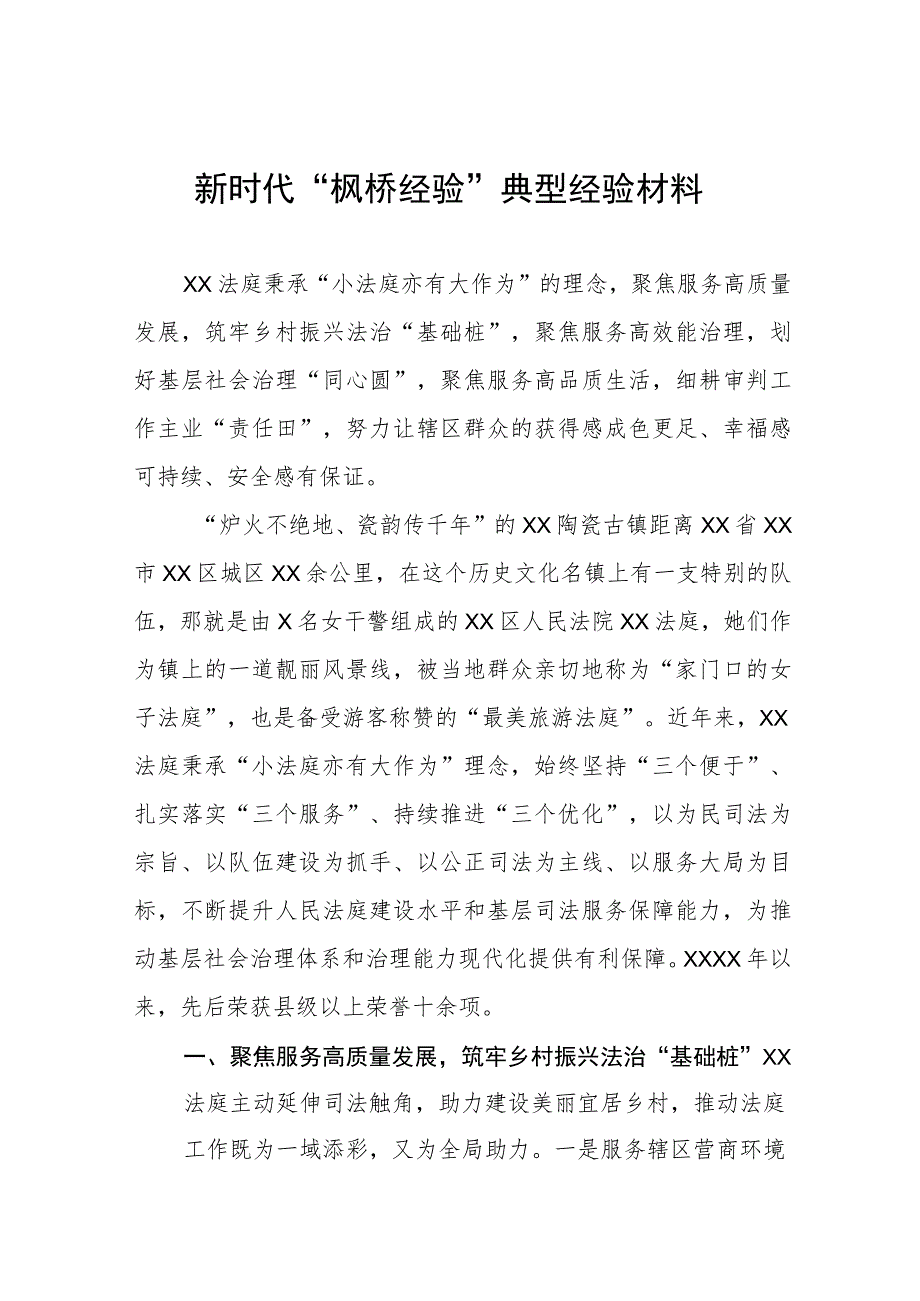 新时代“枫桥经验”典型经验材料
XX法庭秉承“小法庭亦有大作为”的理念，聚焦服务高质量
发展，筑牢乡村振兴法治“基础桩”，聚焦服务高效能治理，划
好基层社会治理“同心圆”，聚焦服务高品质生活，细耕审判工
作主业“责任田”，努力让辖区群众的获得感成色更足、幸福感
可持续、安全感有保证。
“炉火不绝地、瓷韵传千年”的XX陶瓷古镇距离XX省XX
市XX区城区XX余公里，在这个历史文化名镇上有一支特别的队
伍，那就是由X名女干警组成的XX区人民法院XX法庭，她们作
为镇上的一道靓丽风景线，被当地群众亲切地称为“家门口的女
子法庭”，也是备受游客称赞的“最美旅游法庭”。近年来，XX
法庭秉承“小法庭亦有大作为”理念，始终坚持“三个便于”、
扎实落实“三个服务”、持续推进“三个优化”，以为民司法为
宗旨、以队伍建设为抓手、以公正司法为主线、以服务大局为目
标，不断提升人民法庭建设水平和基层司法服务保障能力，为推
动基层社会治理体系和治理能力现代化提供有利保障。XXXX年以
来，先后荣获县级以上荣誉十余项。
一、聚焦服务高质量发展，筑牢乡村振兴法治“基础桩”XX
法庭主动延伸司法触角，助力建设美丽宜居乡村，推动法庭
工作既为一域添彩，又为全局助力。一是服务辖区营商环境